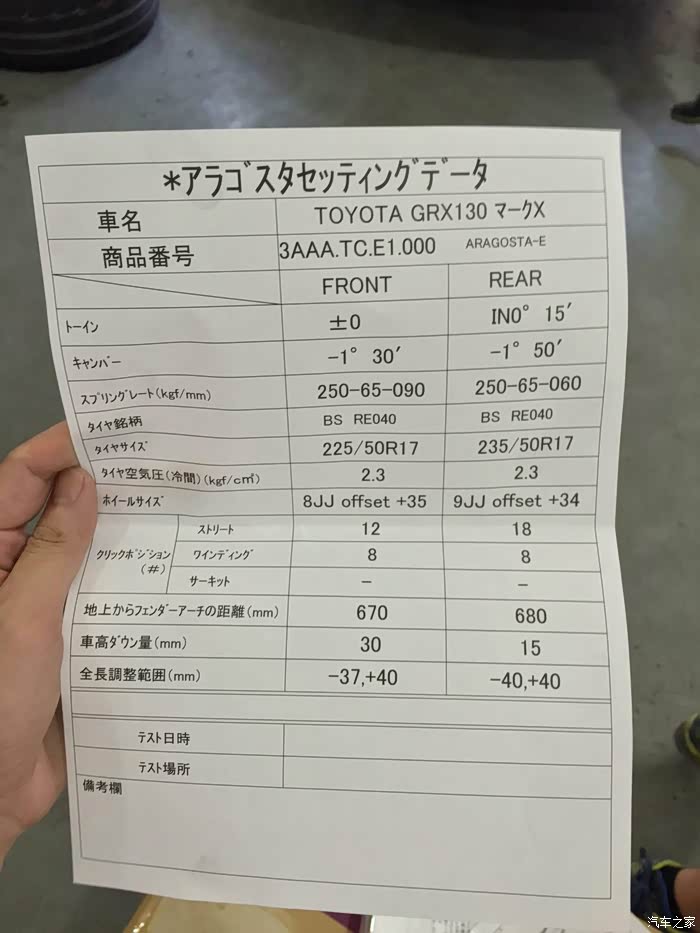 *アラゴスタセッティングデータ
車名 TOYOTA GRX130 マークX
商品番号 3AAA.TC.E1.000 ARAGOSTA-E
FRONT REAR
トーイン ±0 IN0° 15′
キャンバー -1° 30′ -1° 50′
スプリングレート(kgf/mm) 250-65-090 250-65-060
タイヤ銘柄 BS RE040 BS RE040
タイヤサイズ 225/50R17 235/50R17
タイヤ空気圧(冷間)(kgf/c㎡) 2.3 2.3
ホイールサイズ 8JJ offset +35 9JJ offset +34
ストリート 12 18
クリックポジション(#) ワインディング 8 8
サーキット - -
地上からフェンダーアーチの距離(mm) 670 680
車高ダウン量(mm) 30 15
全長調整範囲(mm) -37,+40 -40,+40
テスト日時
テスト場所
備考欄
汽车之家